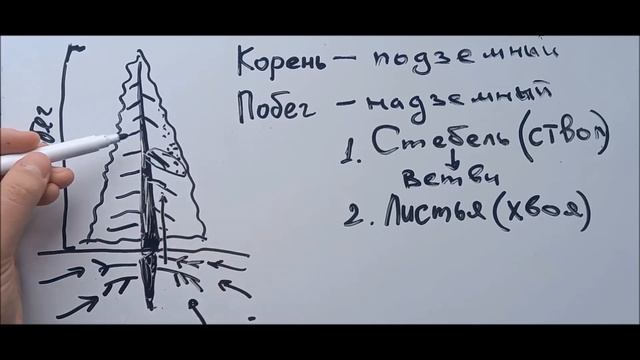 Корень — подземный
Побег — надземный
1. Стебель (ствол)
ветви
2. Листья (хвоя)